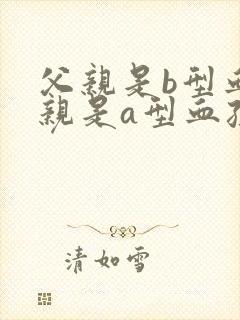 父親是b型血
親是a型血孩
清如雪